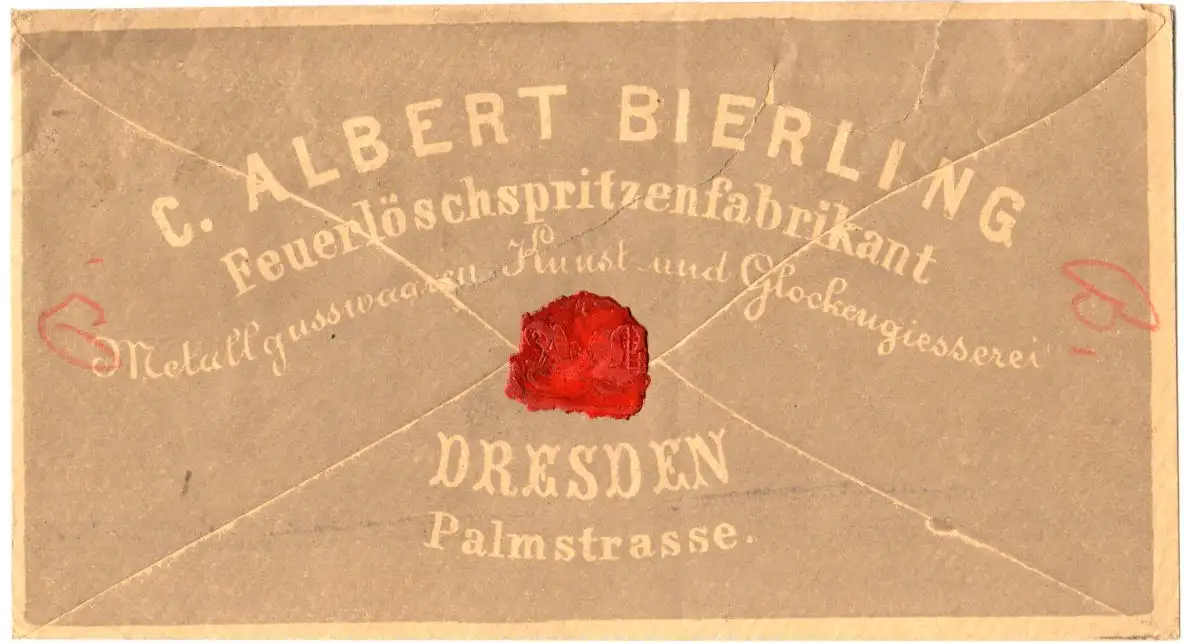 C. ALBERT BIERLING
Feuerlöschspritzenfabrikant
Metallgusswaaren Kunst und Glockengiesserei
DRESDEN
Palmstrasse.